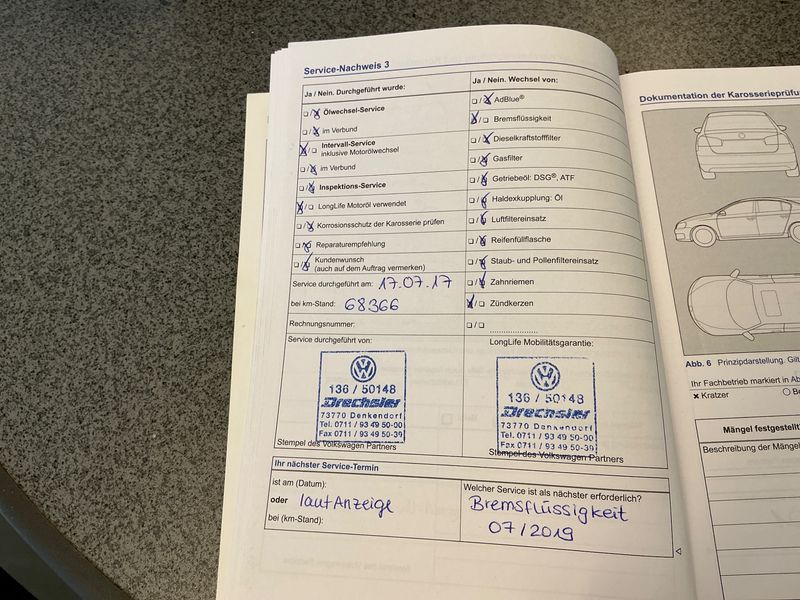 Service-Nachweis 3
Ja / Nein. Durchgeführt wurde:
☐/☒ Ölwechsel-Service
☐/☒ im Verbund
☒/☐ Intervall-Service
inklusive Motorölwechsel
☐/☒ im Verbund
☐/☒ Inspektions-Service
☒/☐ LongLife Motoröl verwendet
☐/☒ Korrosionsschutz der Karosserie prüfen
☐/☒ Reparaturempfehlung
☐/☒ Kundenwunsch
(auch auf dem Auftrag vermerken)
Service durchgeführt am: 17.07.17
bei km-Stand: 68366
Rechnungsnummer:
Ja / Nein. Wechsel von:
☐/☒ AdBlue®
☒/☐ Bremsflüssigkeit
☐/☒ Dieselkraftstofffilter
☐/☒ Gasfilter
☐/☒ Getriebeöl: DSG®, ATF
☐/☒ Haldexkupplung: Öl
☐/☒ Luftfiltereinsatz
☐/☒ Reifenfüllflasche
☐/☒ Staub- und Pollenfiltereinsatz
☐/☒ Zahnriemen
☒/☐ Zündkerzen
☐/☐ ......................
Service durchgeführt von:
136 / 50148
Drechsler
73770 Denkendorf
Tel. 0711 / 93 49 50-00
Fax 0711 / 93 49 50-39
Stempel des Volkswagen Partners
LongLife Mobilitätsgarantie:
136 / 50148
Drechsler
73770 Denkendorf
Tel. 0711 / 93 49 50-00
Fax 0711 / 93 49 50-39
Stempel des Volkswagen Partners
Ihr nächster Service-Termin
ist am (Datum):
oder laut Anzeige
bei (km-Stand):
Welcher Service ist als nächster erforderlich?
Bremsflüssigkeit
07/2019
Dokumentation der Karosserieprüfu
Abb. 6 Prinzipdarstellung. Gilt
Ihr Fachbetrieb markiert in Ab
✗ Kratzer
○ Be
Mängel festgestellt
Beschreibung der Mängel